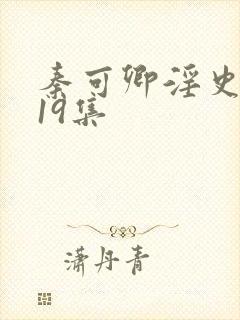 秦可卿淫史
19集
潇丹青